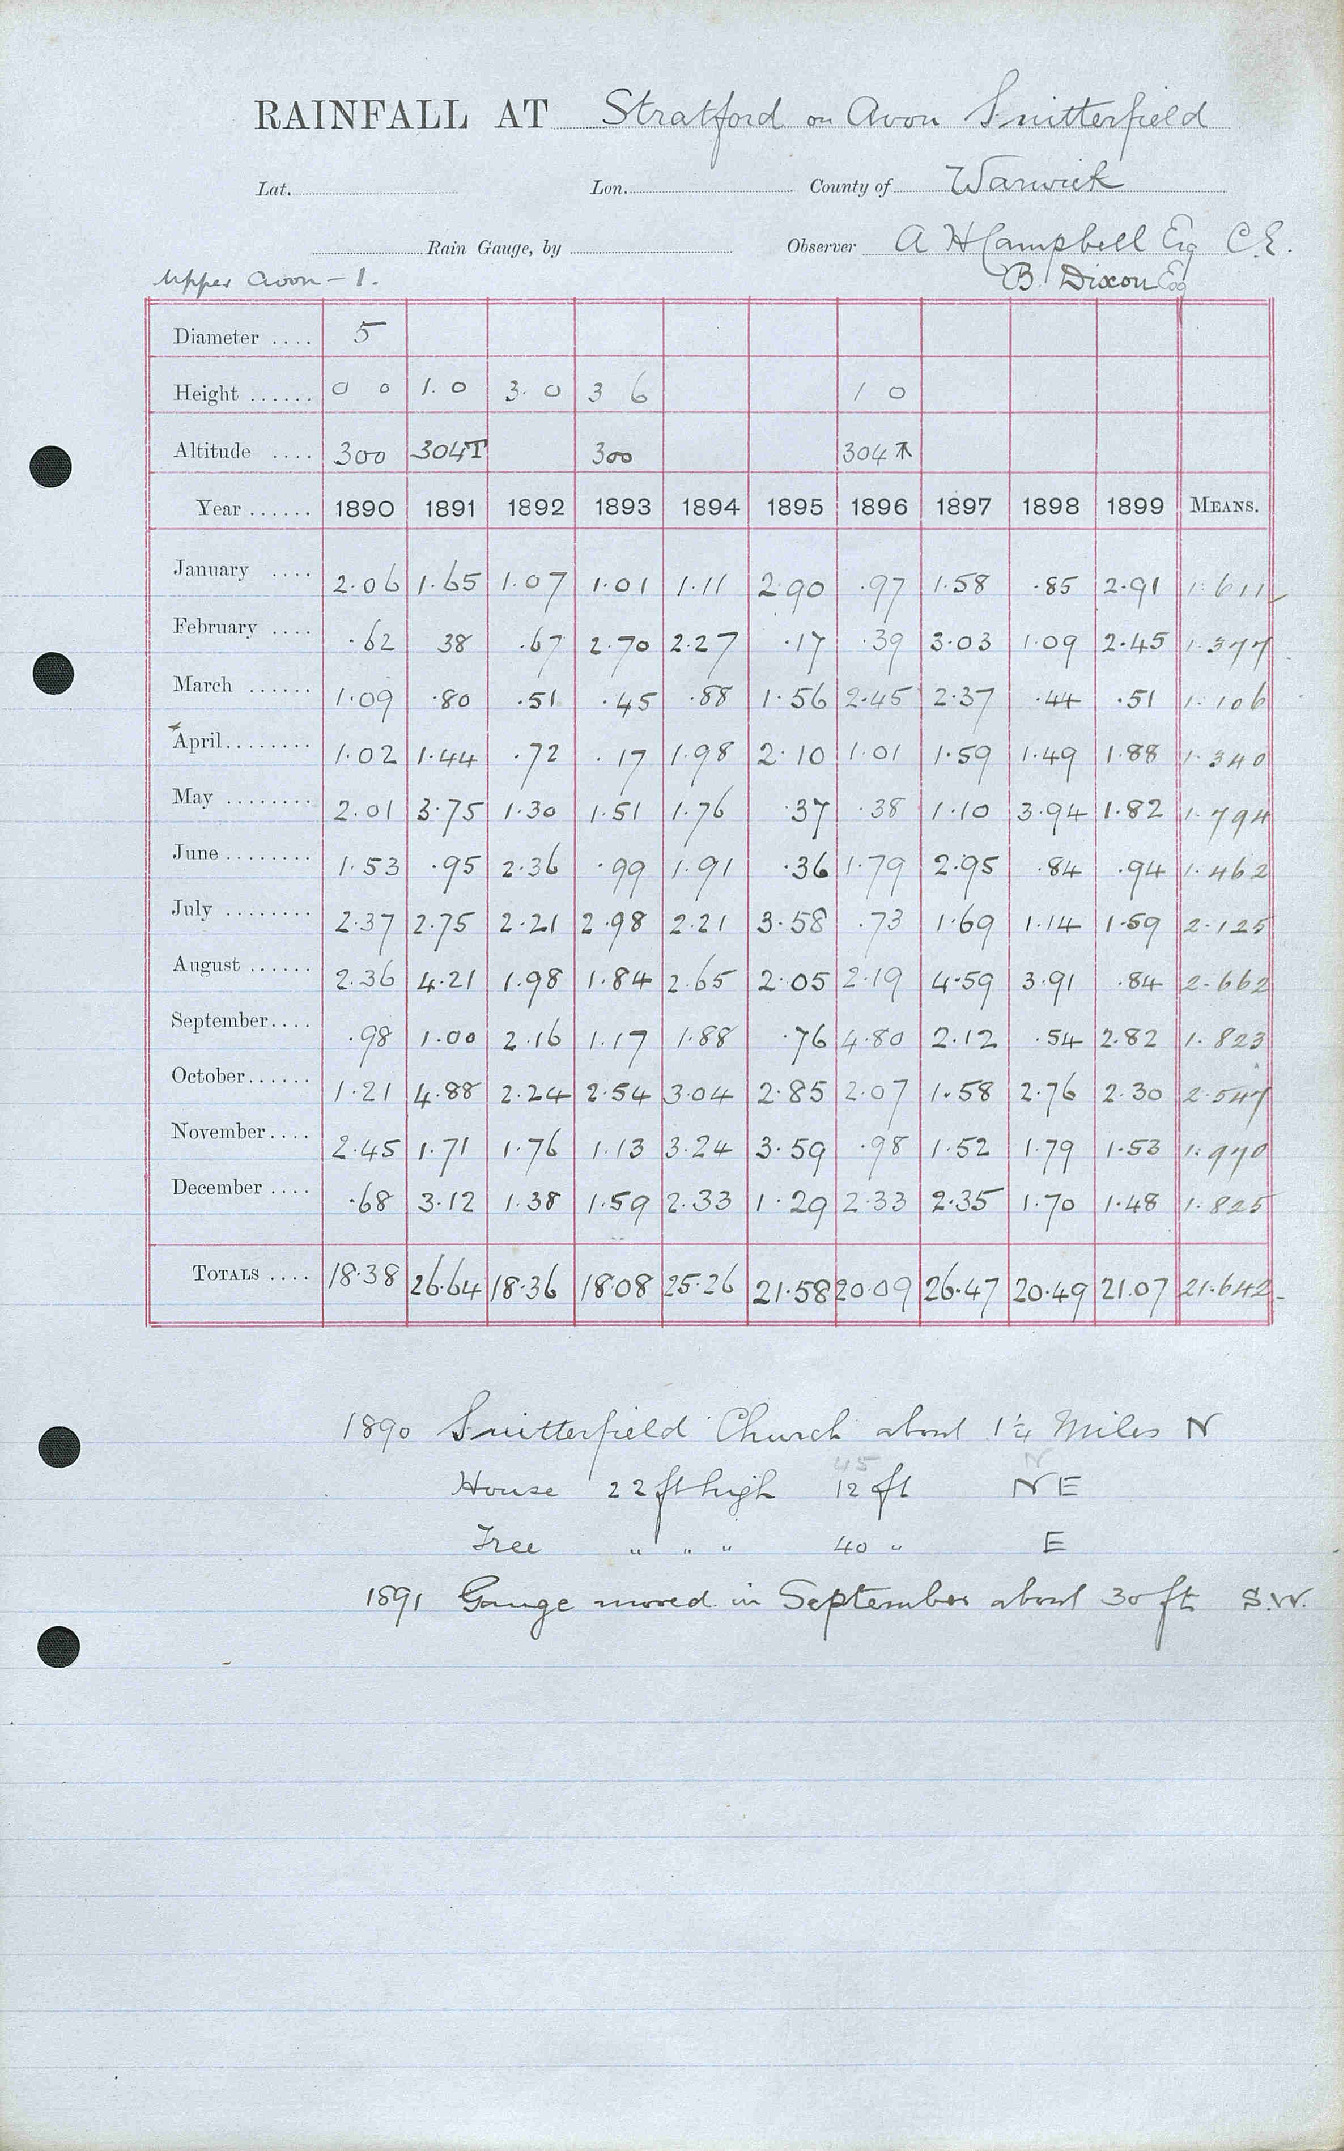 RAINFALL AT Stratford on Avon Snitterfield
Lat. Lon. County of Warwick
Rain Gauge, by Observer A H Campbell Esq C.E.
Upper Avon - 1. B. Dixon Esq
Diameter .... 5
Height ...... 0 0 1. 0 3. 0 3 6 1 0
Altitude .... 300 304T 300 304 T
Year ...... 1890 1891 1892 1893 1894 1895 1896 1897 1898 1899 MEANS.
January .... 2.06 1.65 1.07 1.01 1.11 2.90 .97 1.58 .85 2.91 1.611
February .... .62 38 .67 2.70 2.27 .17 .39 3.03 1.09 2.45 1.377
March ...... 1.09 .80 .51 .45 .88 1.56 2.45 2.37 .44 .51 1.106
April ........ 1.02 1.44 .72 .17 1.98 2.10 1.01 1.59 1.49 1.88 1.340
May ........ 2.01 3.75 1.30 1.51 1.76 .37 .38 1.10 3.94 1.82 1.794
June ........ 1.53 .95 2.36 .99 1.91 .36 1.79 2.95 .84 .94 1.462
July ........ 2.37 2.75 2.21 2.98 2.21 3.58 .73 1.69 1.14 1.59 2.125
August ...... 2.36 4.21 1.98 1.84 2.65 2.05 2.19 4.59 3.91 .84 2.662
September .... .98 1.00 2.16 1.17 1.88 .76 4.80 2.12 .54 2.82 1.823
October ...... 1.21 4.88 2.24 2.54 3.04 2.85 2.07 1.58 2.76 2.30 2.547
November .... 2.45 1.71 1.76 1.13 3.24 3.59 .98 1.52 1.79 1.53 1.970
December .... .68 3.12 1.38 1.59 2.33 1.29 2.33 2.35 1.70 1.48 1.825
TOTALS .... 18.38 26.64 18.36 18.08 25.26 21.58 20.09 26.47 20.49 21.07 21.642
1890 Snitterfield Church about 1¼ Miles N
45 N
House 22 ft high 12 ft NE
Tree " " " 40 " E
1891 Gauge moved in September about 30 ft S.W.